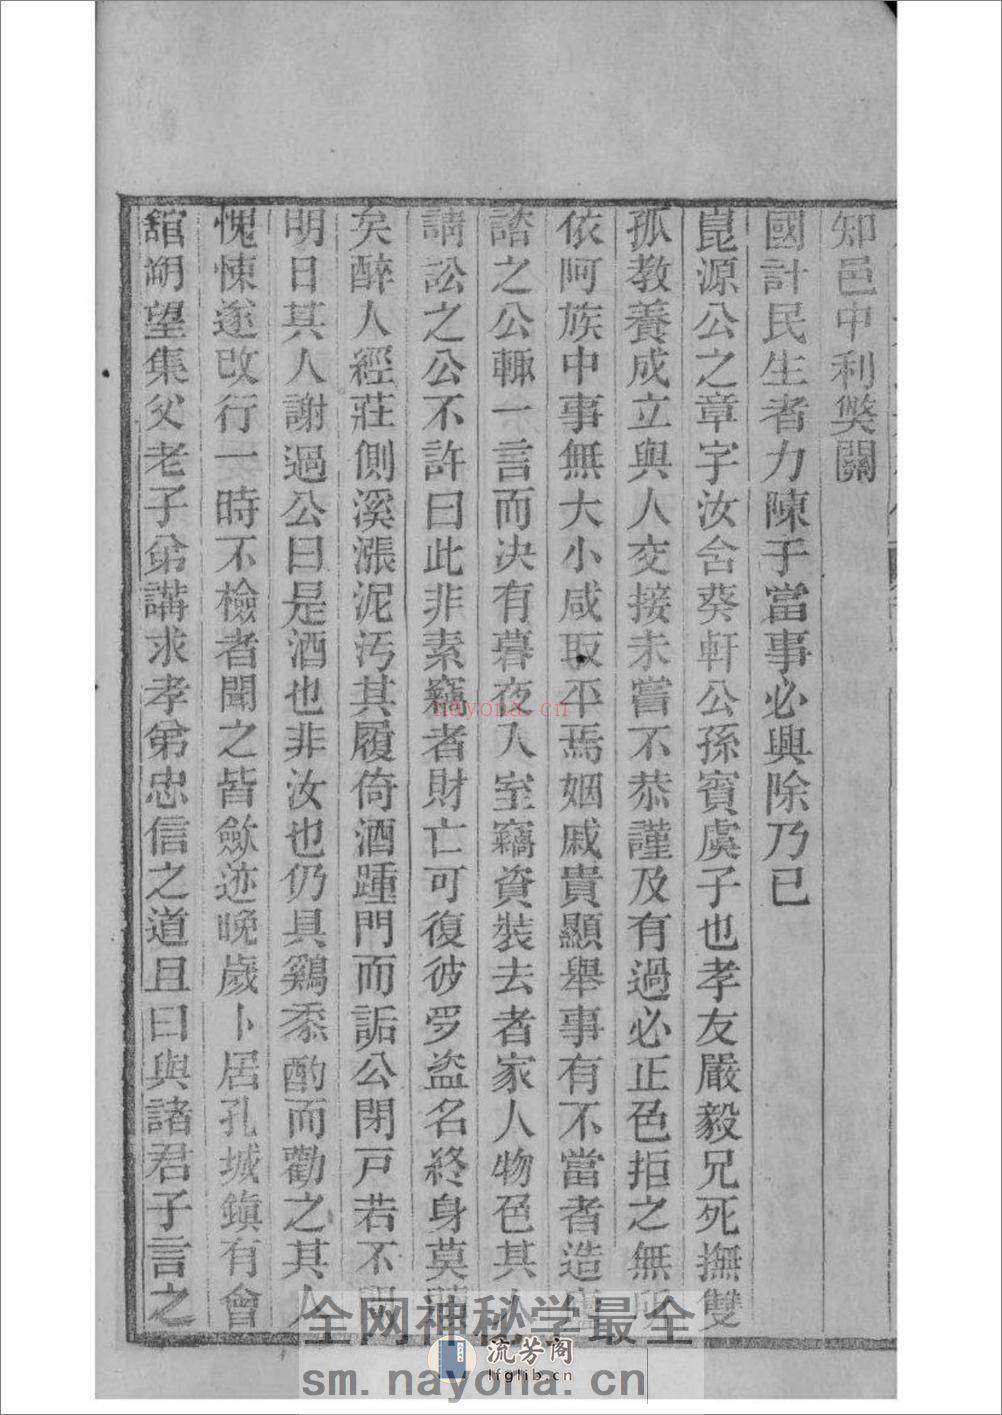 知邑中利獘關
國計民生者力陳于當事必興除乃已
崑源公之章字汝含葵軒公孫賓虞子也孝友嚴毅兄死撫雙
孤教養成立與人交接未嘗不恭謹及有過必正色拒之無
依阿族中事無大小咸取平焉姻戚貴顯舉事有不當者造
諮之公輙一言而决有暮夜入室竊資裝去者家人物色其人
請訟之公不許曰此非素竊者財亡可復彼罗盜名終身莫
矣醉人經莊側溪漲泥汚其履倚酒踵門而詬公閉戸若不
明日其人謝過公曰是酒也非汝也仍具鷄黍酌而勸之其人
愧悚遂改行一時不檢者聞之皆歛迹晚歲卜居孔城鎭有會
舘朔望集父老子弟講求孝弟忠信之道且曰與諸君子言之
nayona.cn
全网神秘学最全
流芳阁
lfglib.cn
sm.nayona.cn